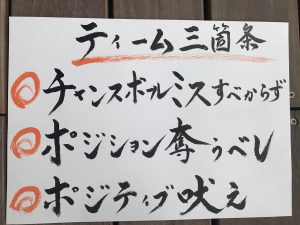 ティーム三箇条
チャンスボールミスすべからず
ポジション奪うべし
ポジティブ吠え